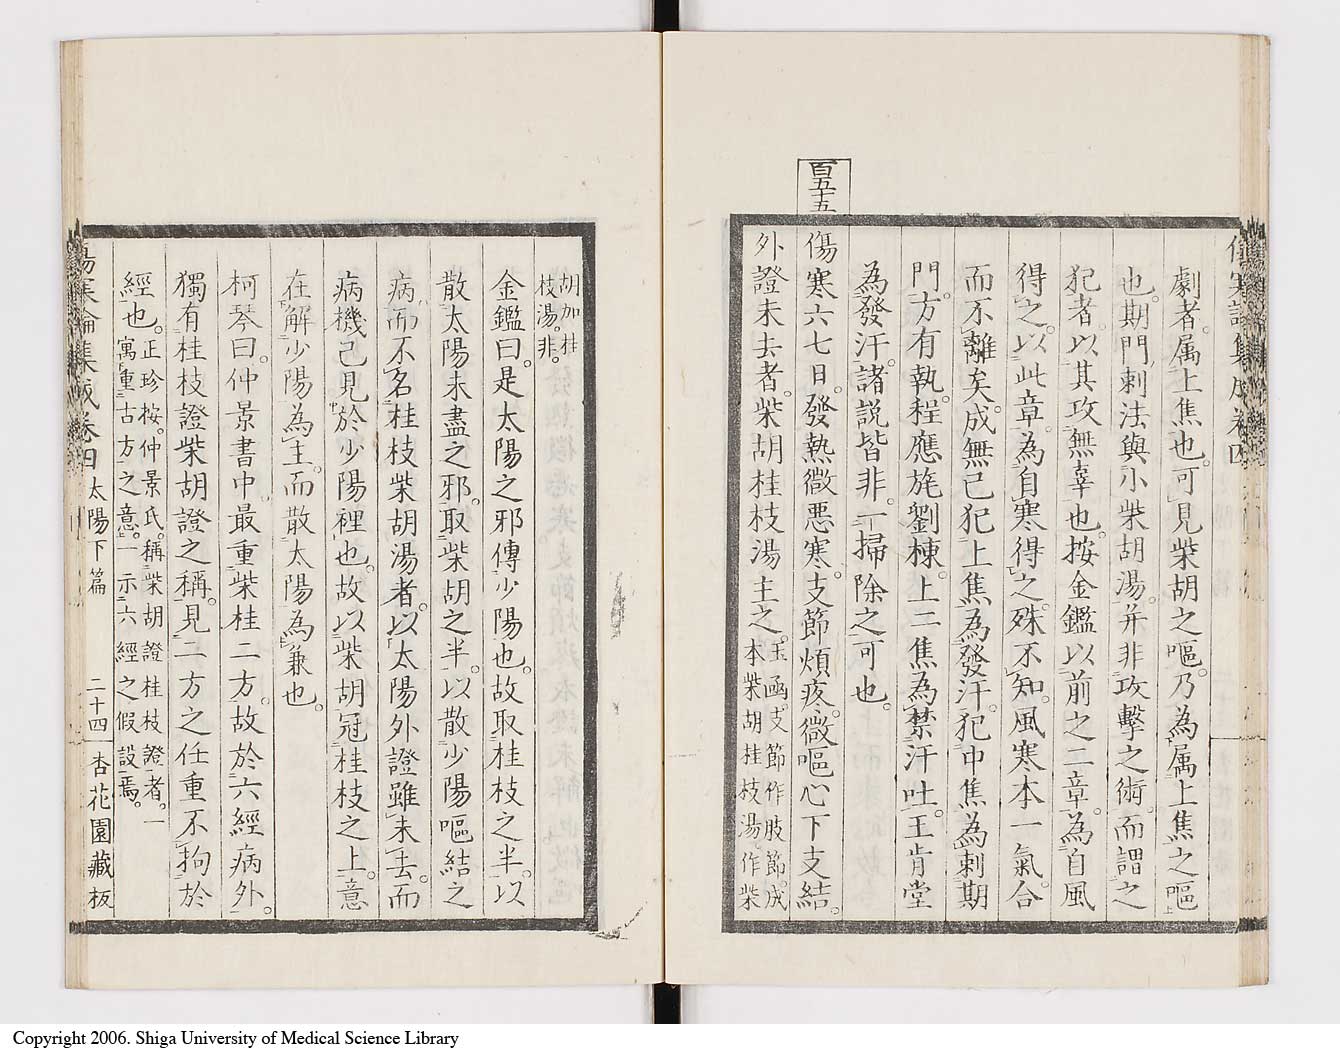 劇者。属上焦也。可見柴胡之嘔。乃為属上焦之嘔
也。期門刺法與小柴胡湯。并非攻擊之術。而謂之
犯者以其攻無辜也。按金鑑以前之二章。為自風
得之。以此章。為自寒得之。殊不知。風寒本一氣。合
而不離矣。成無己犯上焦為發汗。犯中焦為刺期
門。方有執。程應旄劉棟。上二焦為禁汗吐。王肯堂
為發汗。諸説皆非。一掃除之可也。
百五十五
傷寒六七日。發熱微悪寒。支節煩疼。微嘔心下支結。
外證未去者。柴胡桂枝湯主之。玉函。支節作肢節。成
本柴胡桂枝湯作柴
胡加桂
枝湯。非。
金鑑曰。是太陽之邪傳少陽也。故取桂枝之半。以
散太陽未盡之邪。取柴胡之半。以散少陽嘔結之
病。而不名桂枝柴胡湯者。以太陽外證雖未去。而
病機已見於少陽裡也。故以柴胡冠桂枝之上。意
在解少陽為主。而散太陽為兼也。
柯琴曰。仲景書中。最重柴桂二方。故於六經病外。
獨有桂枝證柴胡證之稱。見二方之任重不拘於
經也。正珍按。仲景氏。稱柴胡證桂枝證者。一
寓重古方之意。一示六經之假設焉。
傷寒論集成卷四 太陽下篇 二十四 杏花園藏板
Copyright 2006. Shiga University of Medical Science Library